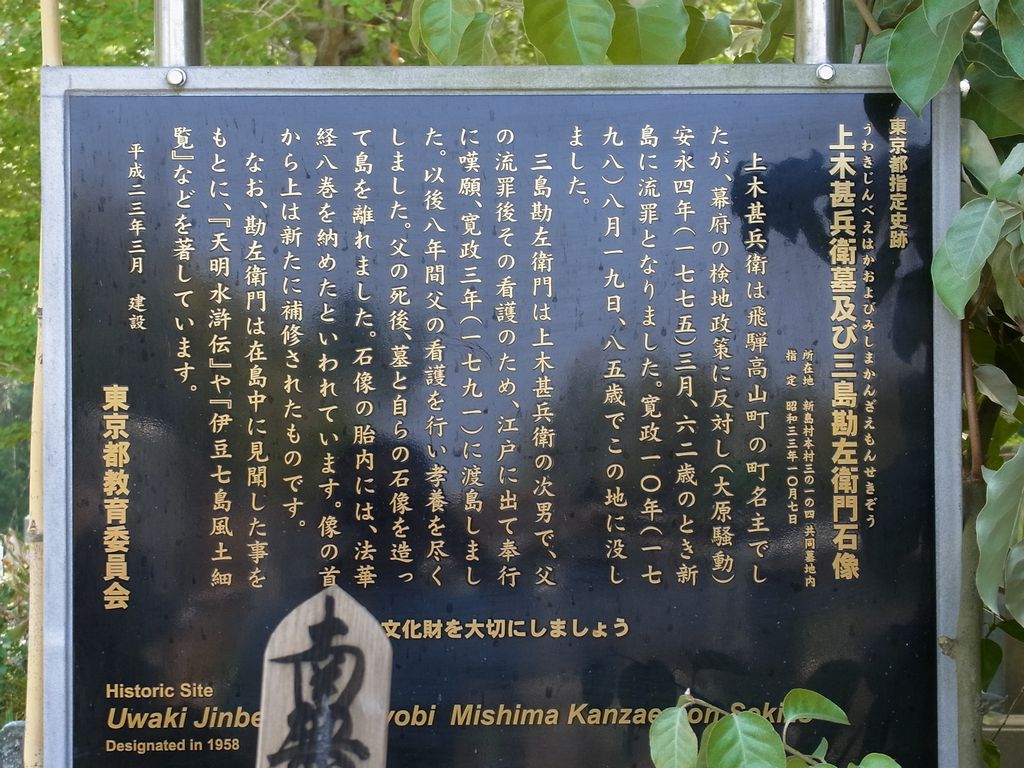 東京都指定史跡
うわきじんべえはかおよびみしまかんざえもんせきぞう
上木甚兵衛墓及び三島勘左衛門石像
所在地 新島村本村三の一の四 共同墓地内
指定 昭和三三年一〇月七日
上木甚兵衛は飛騨高山町の町名主でし
たが、幕府の検地政策に反対し(大原騒動)
安永四年(一七七五)三月、六二歳のとき新
島に流罪となりました。寛政一〇年(一七
九八)八月一九日、八五歳でこの地に没し
ました。
三島勘左衛門は上木甚兵衛の次男で、父
の流罪後その看護のため、江戸に出て奉行
に嘆願、寛政三年(一七九一)に渡島しまし
た。以後八年間父の看護を行い孝養を尽く
しました。父の死後、墓と自らの石像を造っ
て島を離れました。石像の胎内には、法華
経八巻を納めたといわれています。像の首
から上は新たに補修されたものです。
なお、勘左衛門は在島中に見聞した事を
もとに、『天明水滸伝』や『伊豆七島風土細
覧』などを著しています。
平成二三年三月 建設
東京都教育委員会
文化財を大切にしましょう
Historic Site
Uwaki Mishima
Designated in 1958
南無